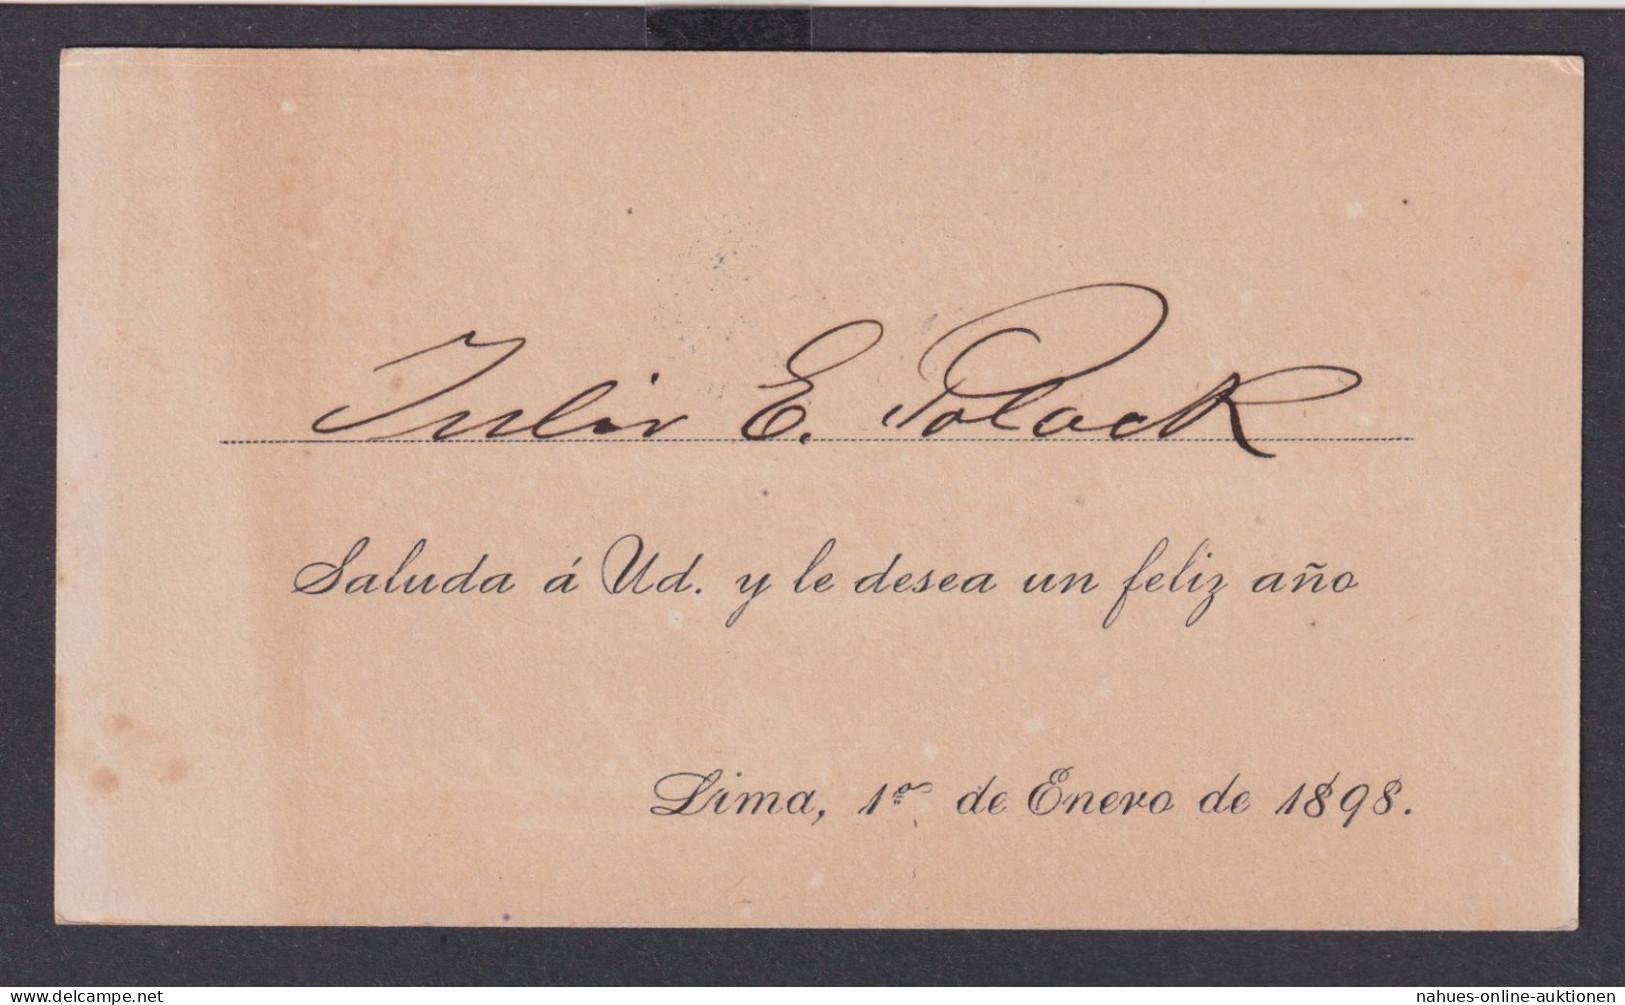 Julio E. Polack
Saluda á Ud. y le desea un feliz año
Lima, 1º de Enero de 1898.
www.delcampe.net
nahues-online-auktionen